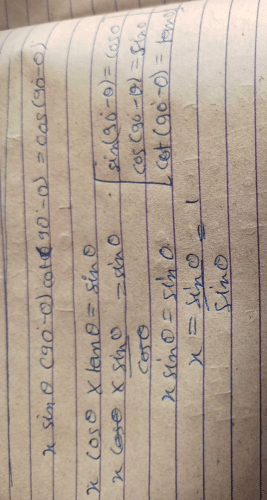 x sin θ (90°-θ) cot (90°-θ) = cos (90-θ)
x cos θ × tan θ = sin θ
x cos θ × sin θ / cos θ = sin θ
x sin θ = sin θ
x = sin θ / sin θ = 1
sin (90°-θ) = cos θ
cos (90°-θ) = sin θ
cot (90°-θ) = tan θ